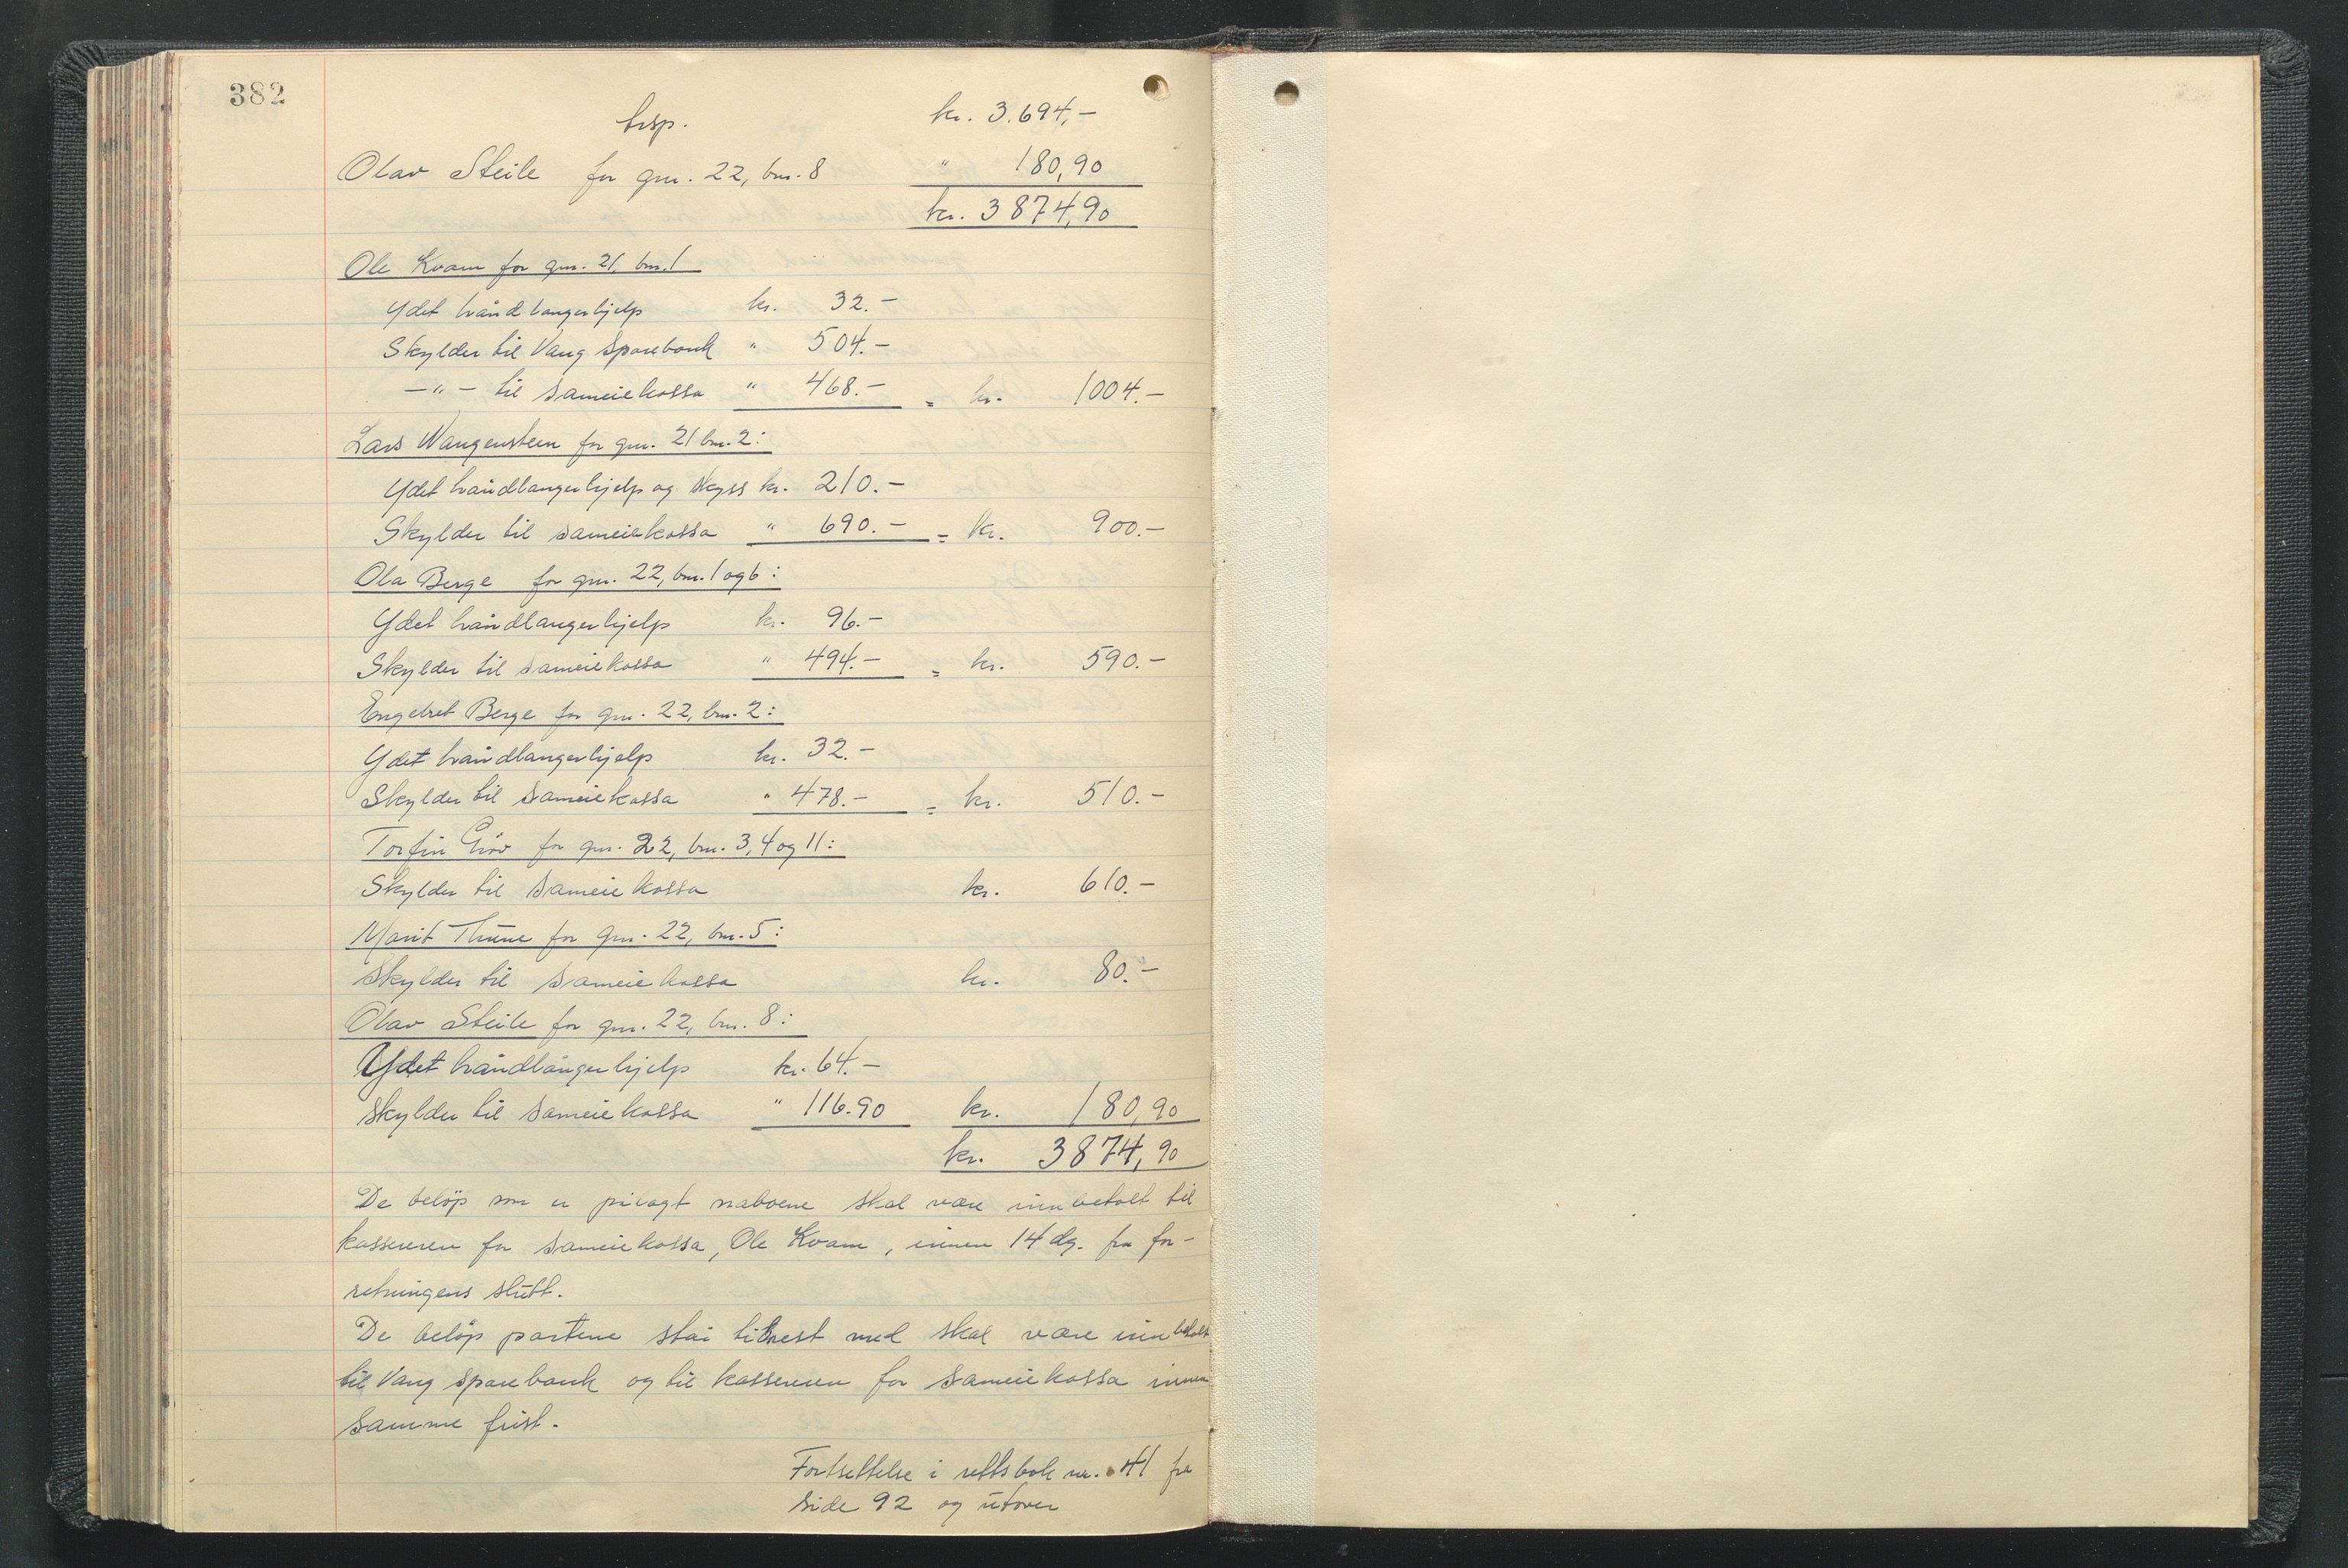 382
trsp. kr. 3.694,-
Olav Steile for gnr. 22, bnr. 8 " 180,90
kr. 3874,90
Ole Kvam for gnr. 21, bnr. 1
Ydet håndlangerhjelp kr. 32.-
Skylder til Vang Sparebank " 504.-
-"- til sameiekassa " 468.- = kr. 1004.-
Lars Wangensteen for gnr. 21 bnr. 2:
Ydet håndlangerhjelp og skyss kr. 210.-
Skylder til sameiekassa " 690.- = kr. 900.-
Ola Berge for gnr. 22, bnr. 1 og 6:
Ydet håndlangerhjelp kr. 96.-
Skylder til sameiekassa " 494.- = kr. 590.-
Engebret Berge for gnr. 22, bnr. 2:
Ydet håndlangerhjelp kr. 32.-
Skylder til sameiekassa " 478.- = kr. 510.-
Torfin Grøv for gnr. 22, bnr. 3, 4 og 11:
Skylder til sameiekassa kr. 610.-
Marit Thune for gnr. 22, bnr. 5:
Skylder til sameiekassa kr. 80.-
Olav Steile for gnr. 22, bnr. 8:
Ydet håndlangerhjelp kr. 64.-
skylder til sameiekassa " 116.90 kr. 180,90
kr. 3874,90
De beløp som er pålagt naboene skal være innbetalt til
kassereren for sameiekassa, Ole Kvam, innen 14 dg. fra for-
retningens slutt.
De beløp partene står til rest med skal være innbetalt
til Vang sparebank og til kassereren for sameiekassa innen
samme frist.
Fortsettelse i rettsbok nr. 41 fra
side 92 og utover